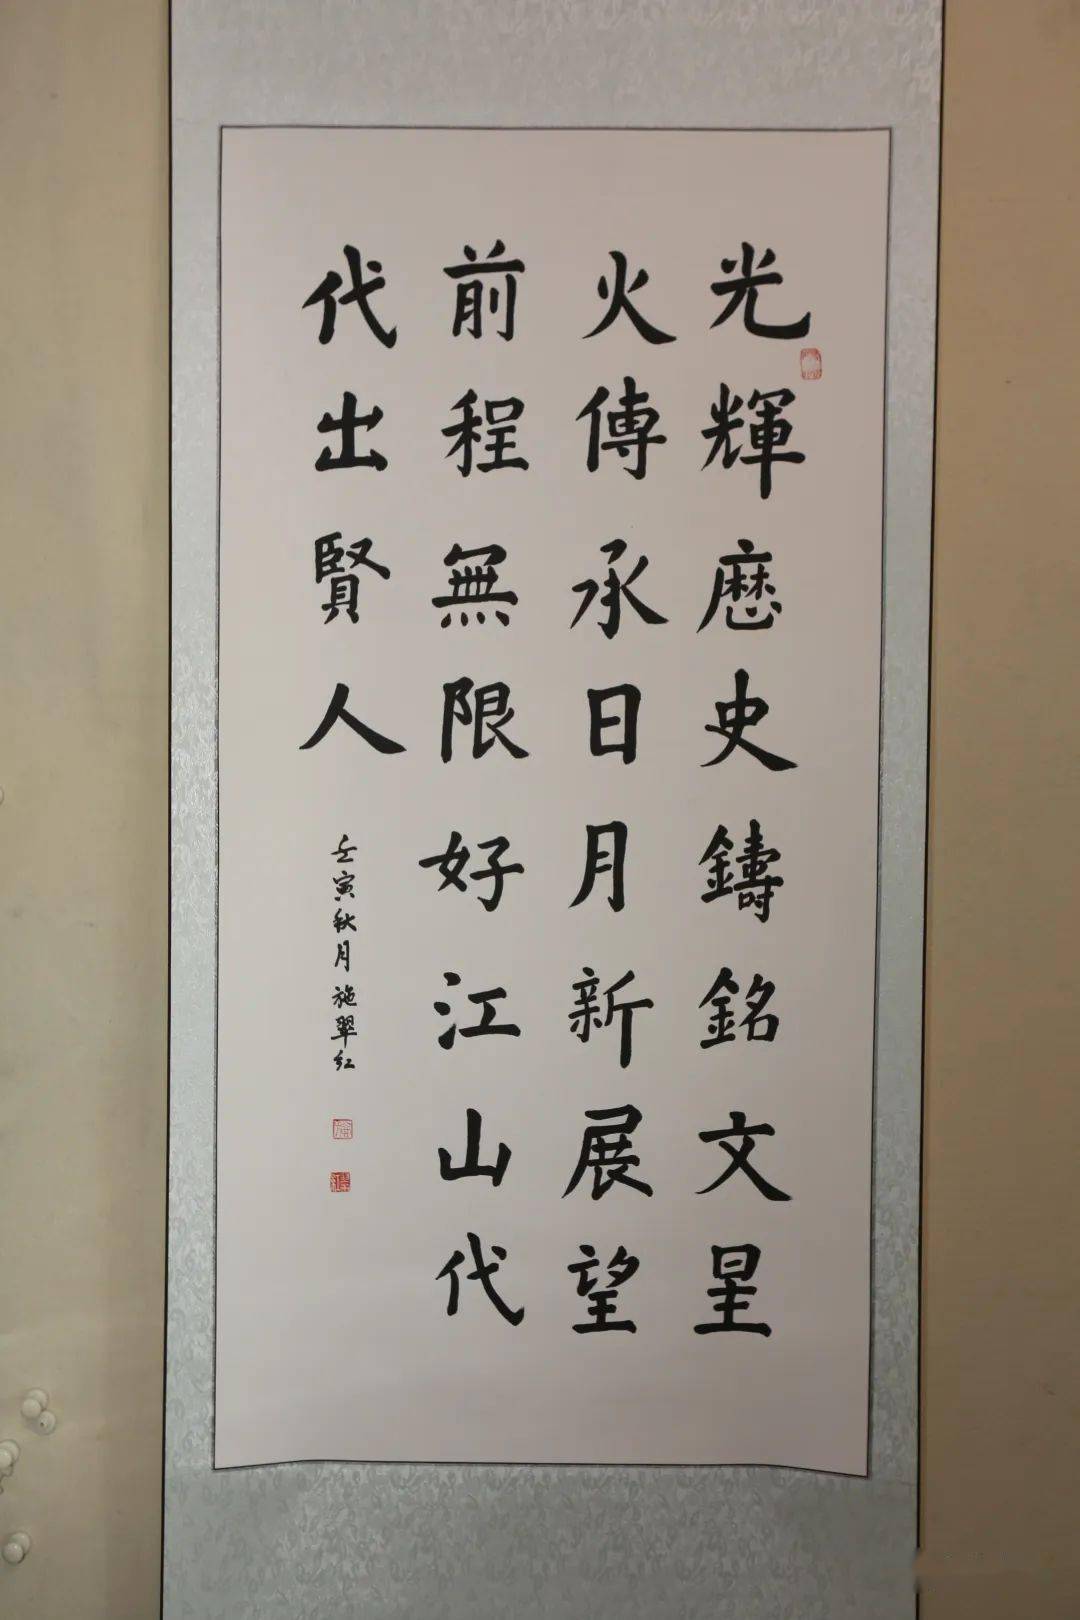 光輝歷史鑄銘文星
火傳承日月新展望
前程無限好江山代
代出賢人
壬寅秋月施翠红